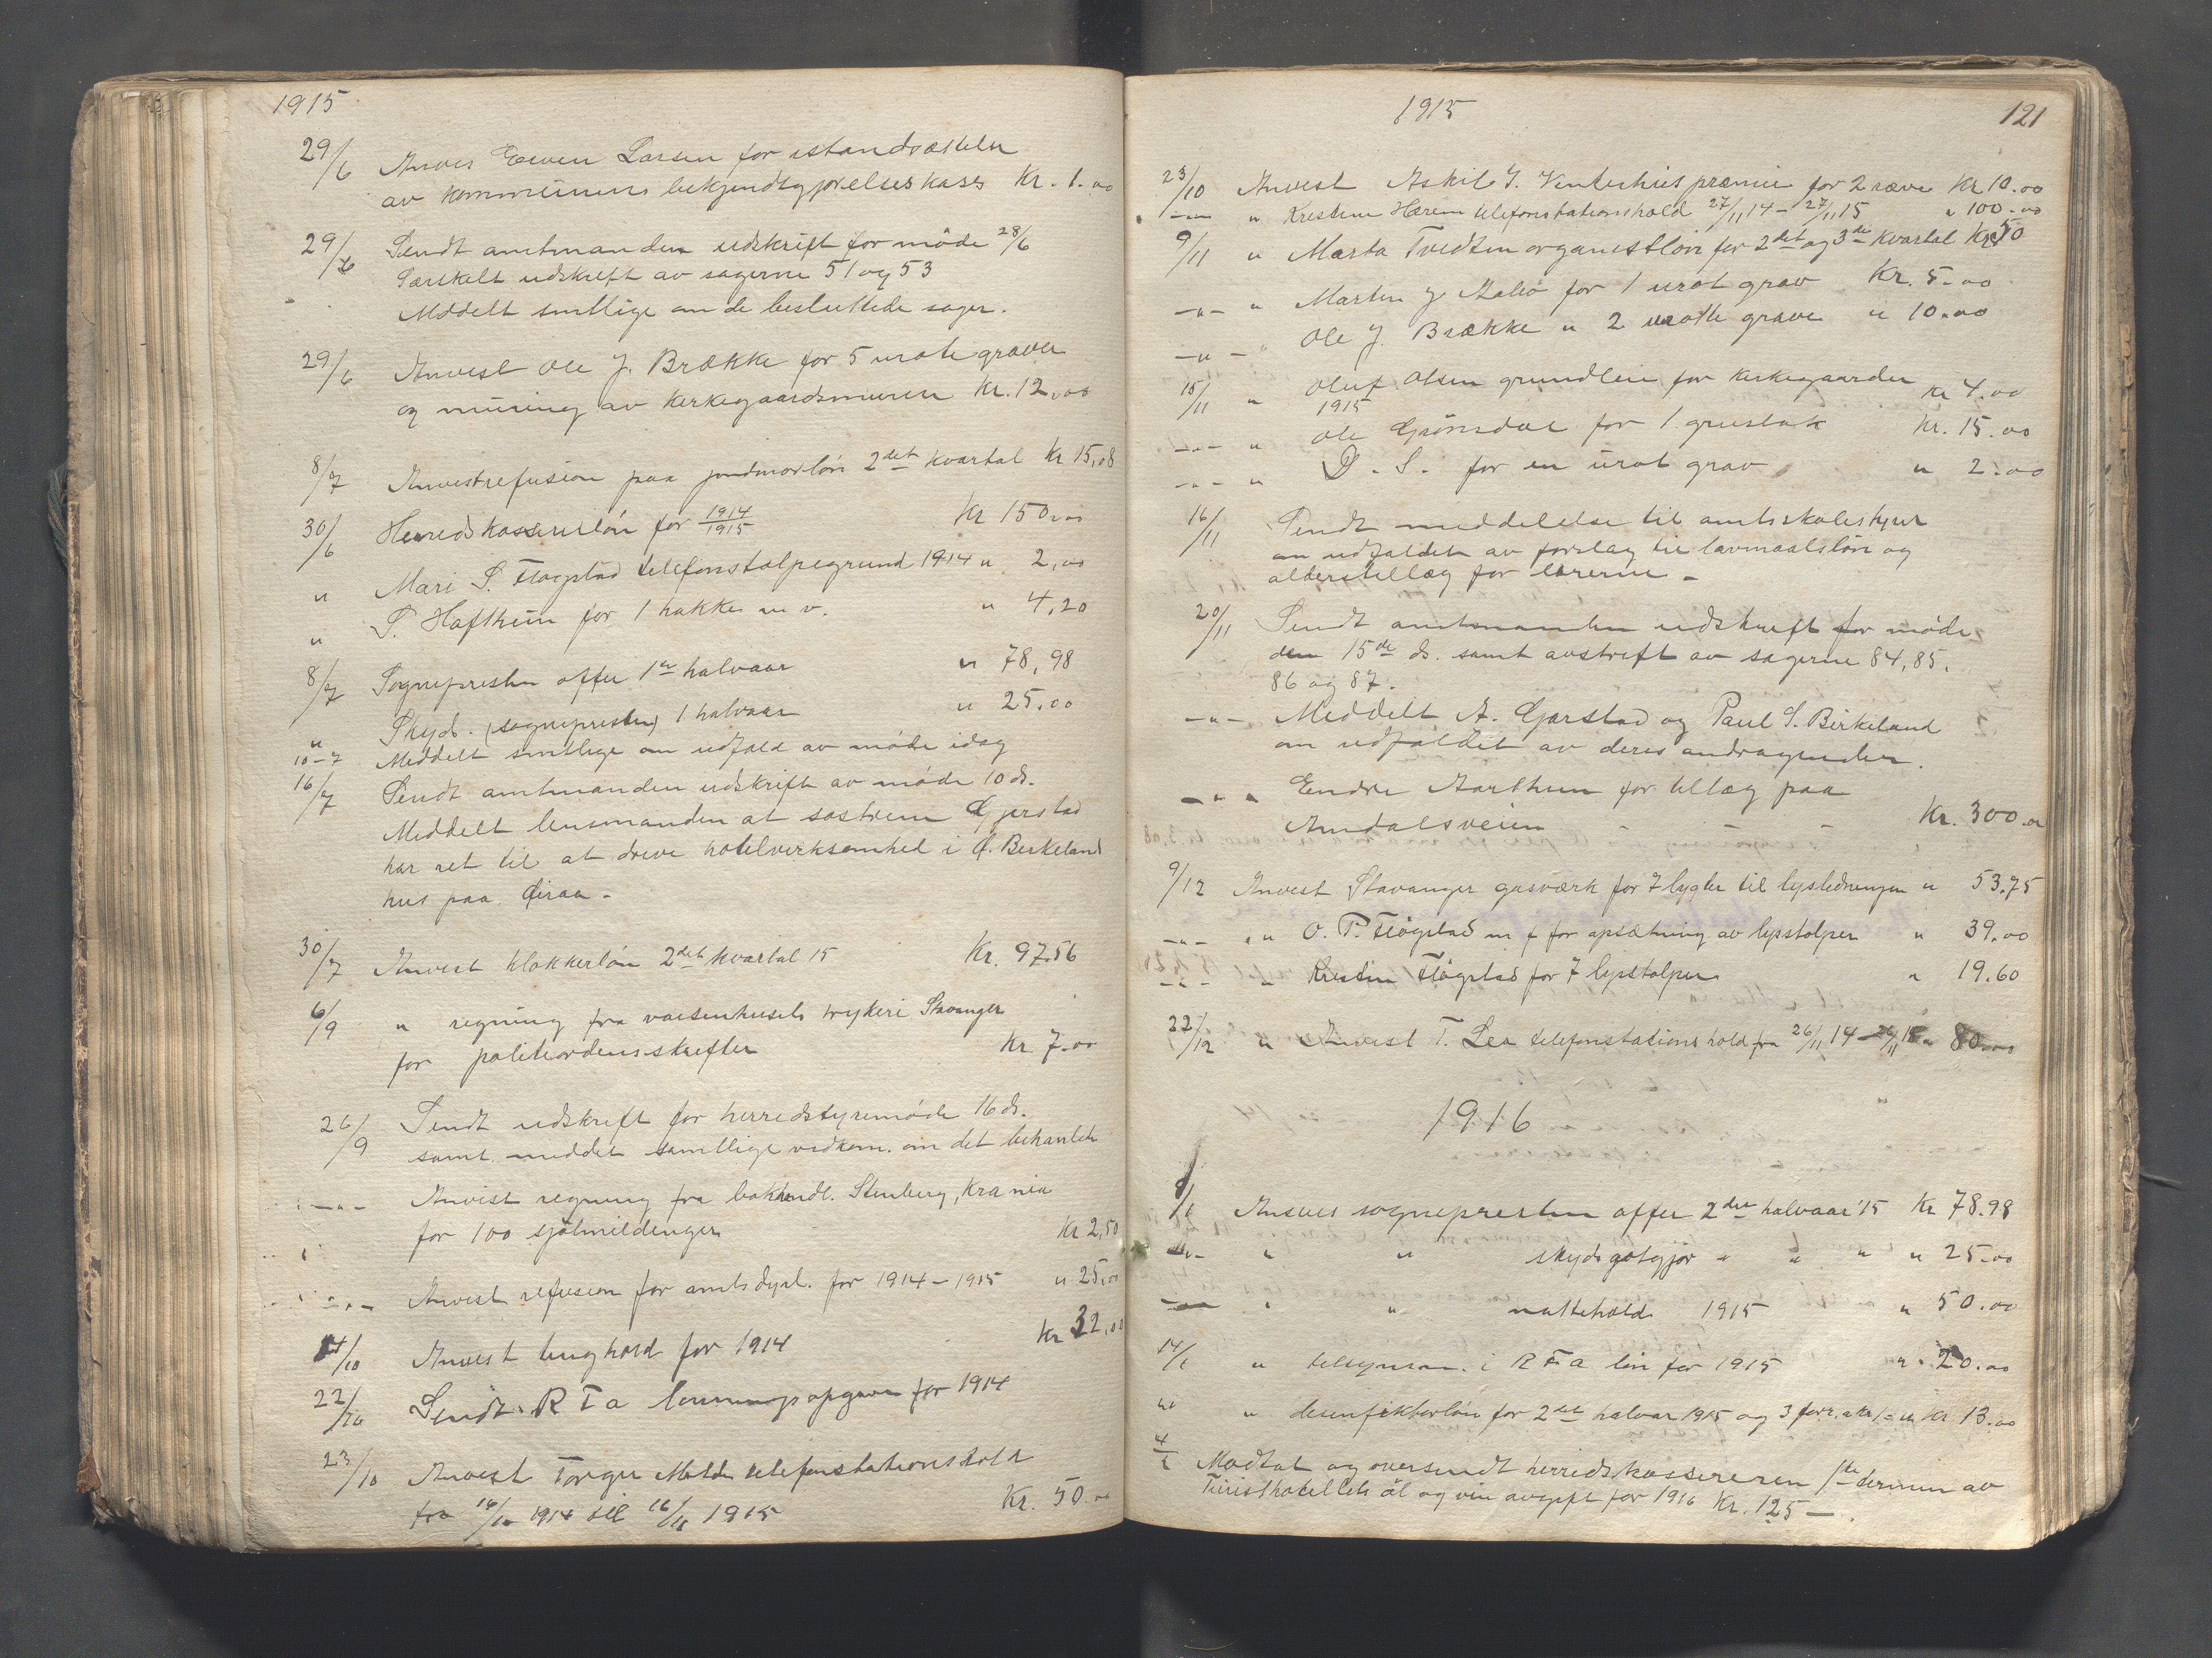 1915
29/6 Anvis Erven Larsen for istandsættelse
av kommunens bekjendtgjørelseskasse Kr. 1.00
29/6 Sendt amtmanden udskrift for møde 28/6
Særskilt udskrift av sagerne 51 og 53
Meddelt samtlige om de besluttede sager.
29/6 Anvist Ole J. Brække for 5 urote graver
og muring av kirkegaardsmuren Kr. 12,00
8/7 Anvist refusion paa jordmorløn 2det kvartal Kr 15,08
30/6 Herredskassererløn for 1914/1915 Kr 150,00
" Mari S. Fløgstad telefonstolpegrund 1914 " 2,00
" S. Hafthun for 1 hakke m v. " 4,20
8/7 Sognepresten offer 1ste halvaar " 78,98
" Skyds. (sognepresten) 1 halvaar " 25.00
10-7 Meddelt samtlige om udfald av møde idag
16/7 Sendt amtmanden udskrift av møde 10 ds.
Meddelt lensmanden at søstrene Gjerstad
har ret til at drive hotelvirksomhed i Birkeland
hus paa
30/7 Anvist klokkerløn 2det kvartal 15 Kr. 97.56
6/9 " regning fra vaisenhusets trykeri Stavanger
for politivedensskrifter Kr 7.00
26/9 Sendt udskrift for herredstyremøde 16 ds.
samt meddelt samtlige vedkom. om det behandlede
-"- Anvist regning fra bokhandl. Stenberg, Kra nia
for 100 Kr 2,50
-"- Anvist refusion for amtsdyrl. for 1914-1915 " 25,00
14/10 Anvist tinghold for 1914 Kr 32,00
22/10 Sendt R T a lønningsopgave for 1914
23/10 Anvist Torger Molde telefonstationshold
fra 16/11 1914 til 16/11 1915 Kr. 50.00
1915 121
23/10 Anvist Askil J. Venteshus præmie for 2 ræve Kr 10.00
-"- " Kristine Hærem telefonstationshold 27/11 14 - 27/11 15 " 100.00
9/11 " Marta Tvedten organistløn for 2det og 3de kvartal Kr 50
-"- " Martin J Aabø for 1 urot grav Kr. 5.00
-"- " Ole J. Brække " 2 urotte grave " 10.00
15/11 " Oluf Olsen grundleie for kirkegaarden
1915 Kr 4.00
-"- " Ole Grønsdal for 1 grustak Kr. 15.00
-"- " D. S. for en urot grav " 2.00
16/11 Sendt meddelelse til amtsskolestyret
om udfaldet av forslag til lavmaalsløn og
alderstillæg for lærerne -
20/11 Sendt amtmanden udskrift for møde
den 15de ds. samt avskrift av sagerne 84, 85.
86 og 87.
-"- Meddelt A. Gjerstad og Paul S. Birkeland
om udfaldet av deres andragender.
-"- Endre Aarthun for tillæg paa
Amdalsveien - - Kr. 300.00
9/12 Anvist Stavanger gasværk for 7 lygter til lysledningen " 53.75
-"- " O. P. Fløgstad m f for opsætning av lysstolper " 39.00
-"- " Kristen Fløgstad for 7 lysstolper " 19.60
22/12 " Anvist T. Lea telefonstations hold fra 26/11 14 - 26/11 15 " 80.00
1916
8/1 Anvist sognepresten offer 2det halvaar '15 Kr 78.98
-"- " " skydsgotgjør " " " " 25.00
-"- " " nattehold 1915 " 50.00
14/1 " tilsynsm. i R T a løn for 1915 " 20.00
" " desinfektørløn for 2det halvaar 1915 og 3 forr. a kr 1- " Kr 13.00
4/1 Modtat og oversendt herredskassereren 1ste termin av
Turisthotellets øl og vin avgift for 1916 Kr. 125 -.